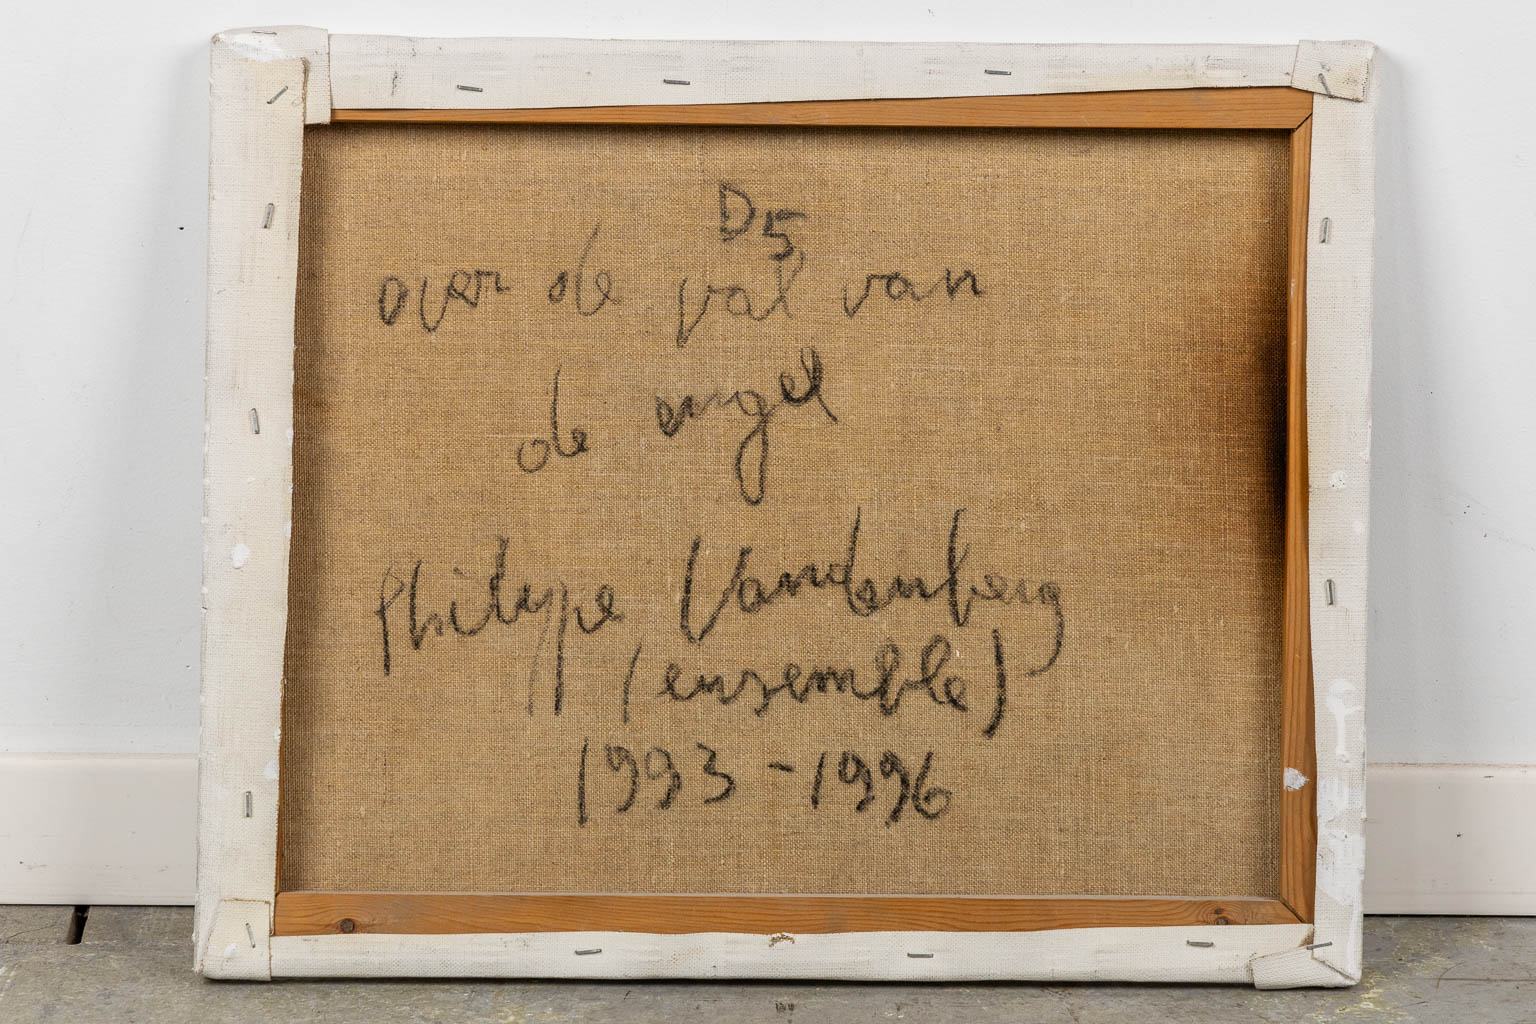 D5
over de val van
de engel
Philippe Vandenberg
(ensemble)
1993-1996